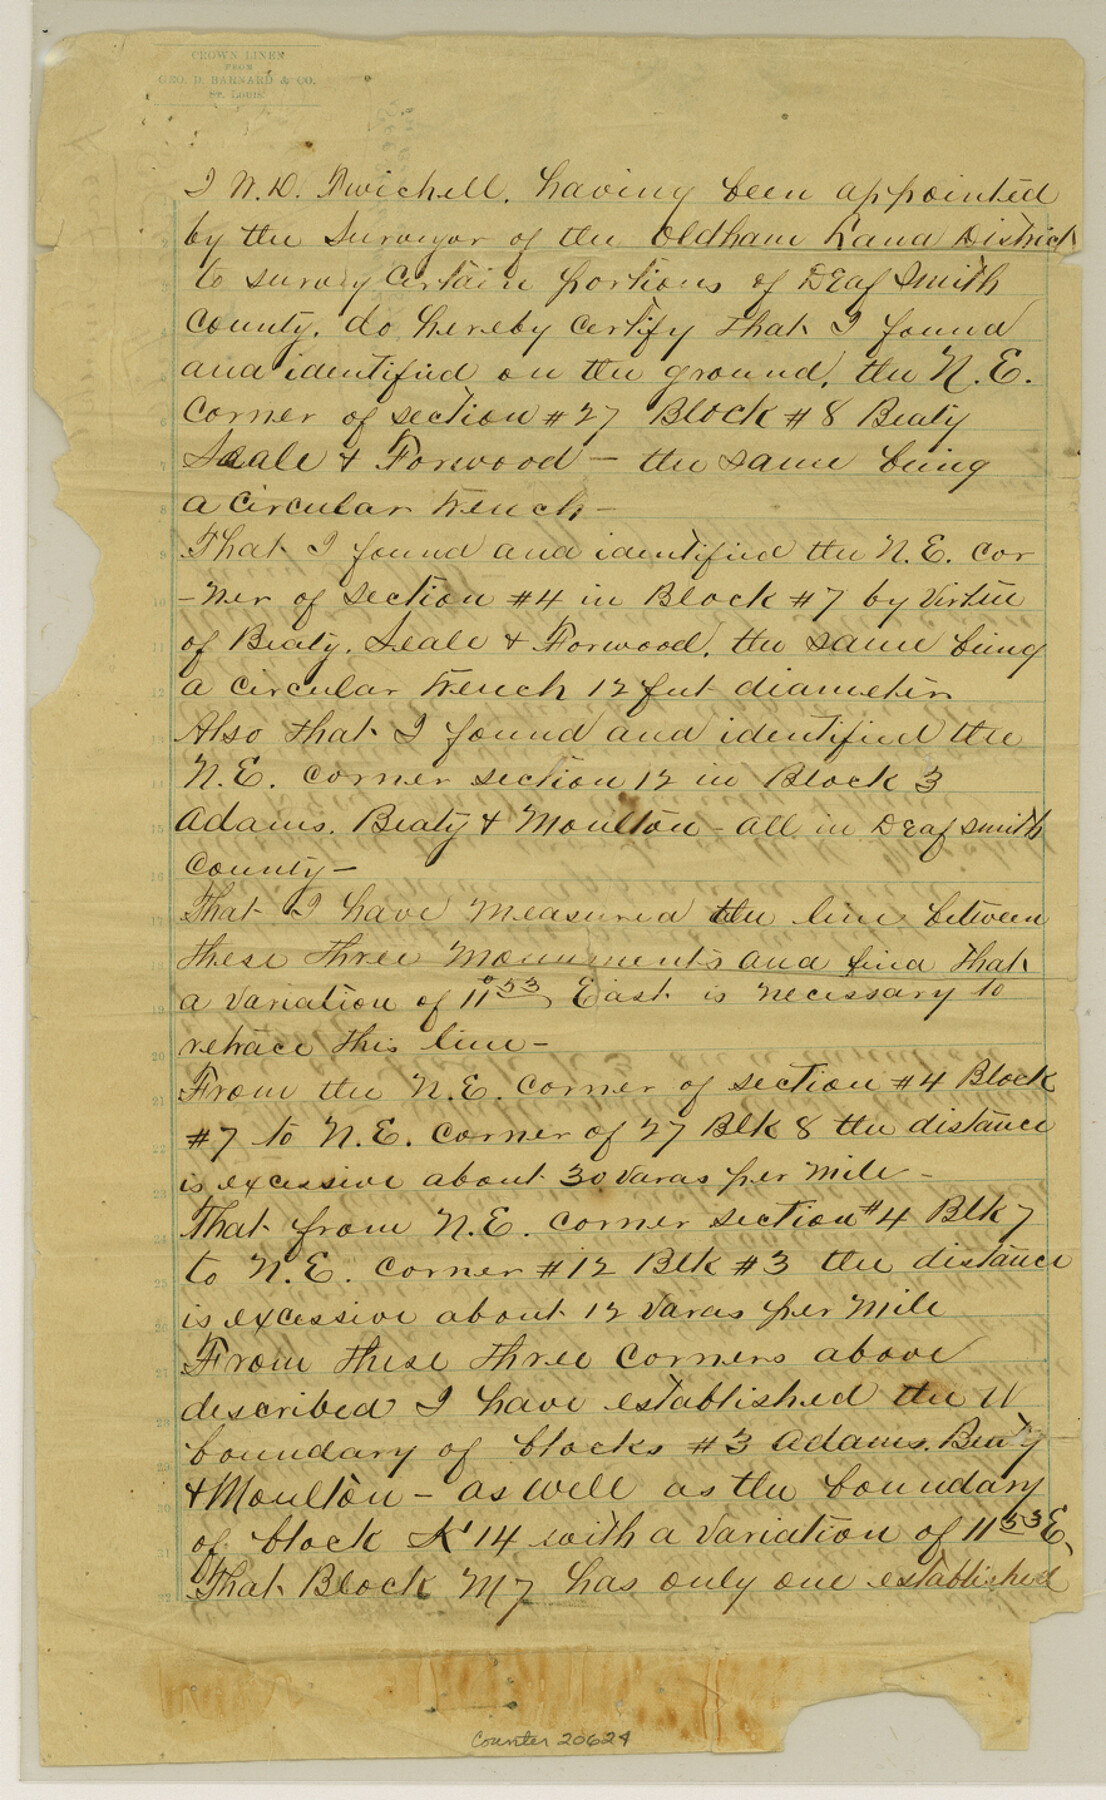 CROWN LINEN
FROM
GEO. D. BARNARD & CO.
ST. LOUIS
I W. D. Twichell, having been appointed
by the Surveyor of the Oldham Land District
to survey Certain portions of Deaf Smith
County, do hereby Certify that I found
and identified on the ground, the N.E.
Corner of section #27 Block #8 Beaty
Seale & Forwood – the same being
a Circular trench –
That I found and identified the N.E. Cor
-ner of section #4 in Block #7 by Virtue
of Beaty, Seale & Forwood, the same being
a circular trench 12 feet diameter
Also that I found and identified the
N.E. Corner section 12 in Block 3
Adams, Beaty & Moulton – all in Deaf Smith
County –
That I have measured the line between
these three Monuments and find that
a Variation of 11°53' East is necessary to
retrace this line –
From the N.E. Corner of section #4 Block
#7 to N.E. Corner of 27 Blk 8 the distance
is excessive about 30 Varas per Mile –
That from N.E. Corner section #4 Blk 7
to N.E. Corner #12 Blk #3 the distance
is excessive about 12 Varas per Mile
From these three Corners above
described I have established the W
boundary of blocks #3 Adams, Beaty
& Moulton – as well as the boundary
of block K 14 with a Variation of 11°53 E,
That Block M7 has only one established
Counter 20624